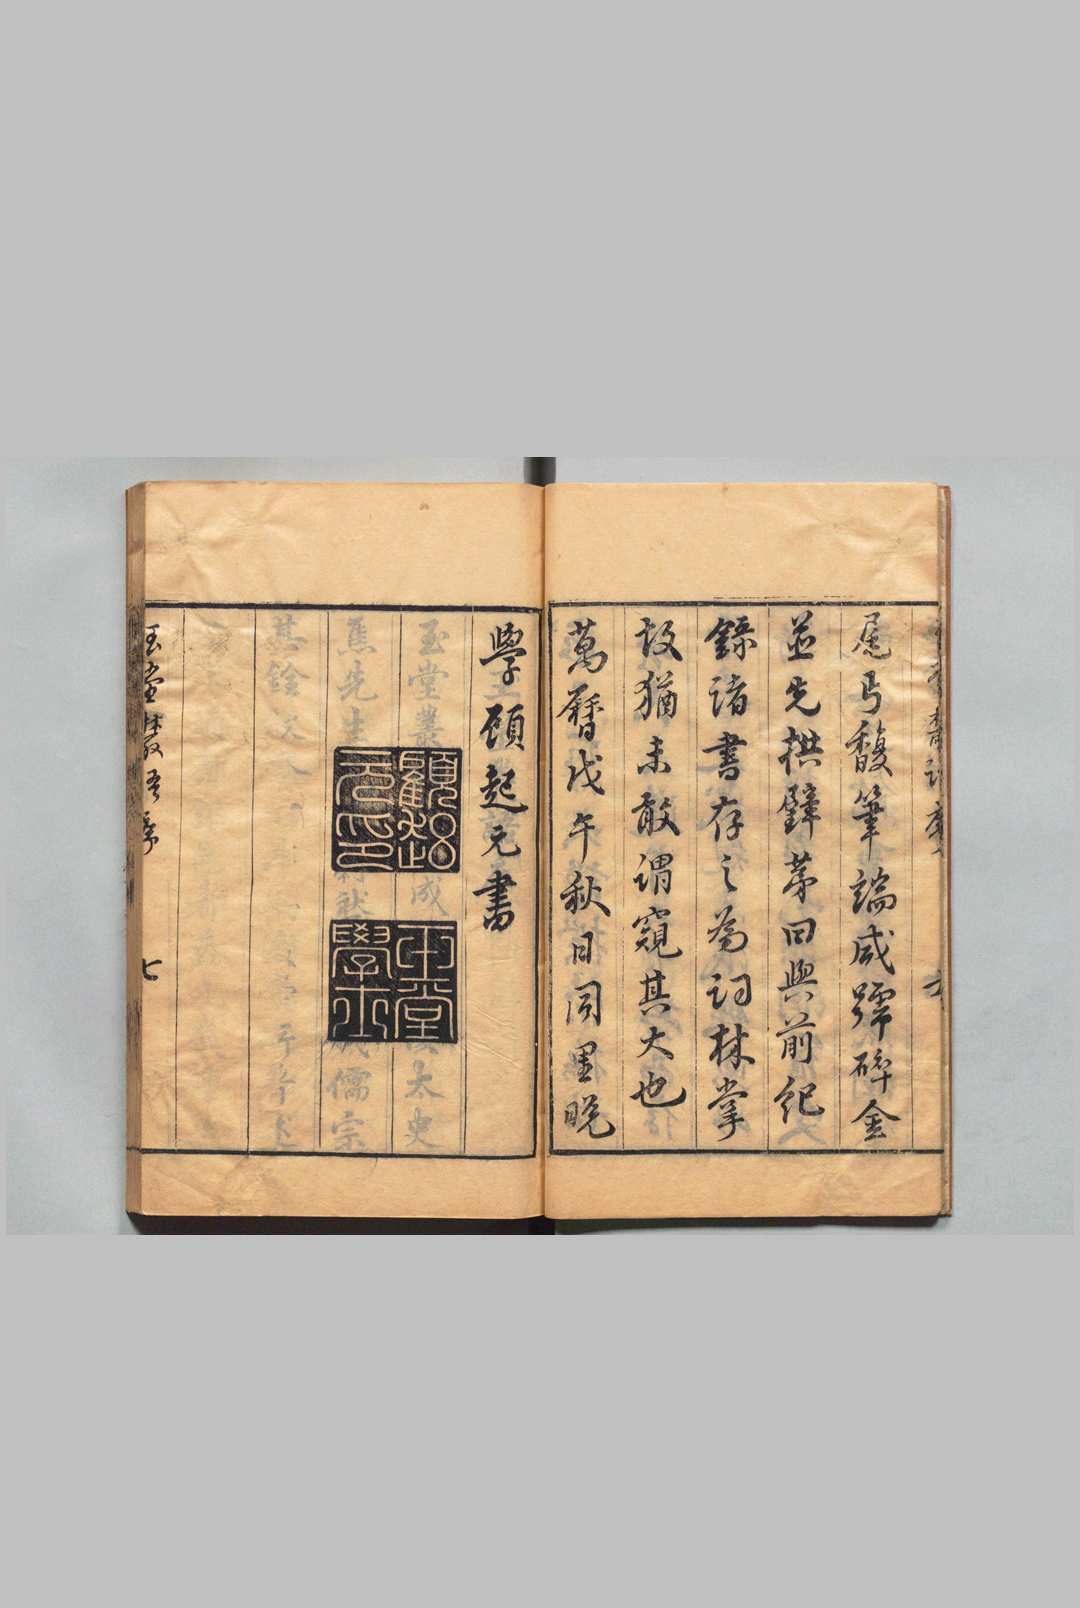 尾丐馥筆端咸號碎金
並先拱璧第曰與前紀
錄諸書存之為詞林掌
故猶未敢謂窺其大也
萬曆戊午秋日同里晚
學顧起元書
顧起
元印
玉堂
學士
玉堂叢語序
七